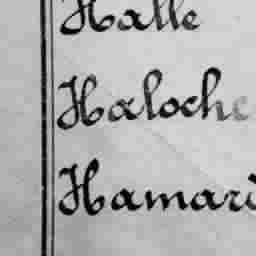 Halle
Haloche
Hamard